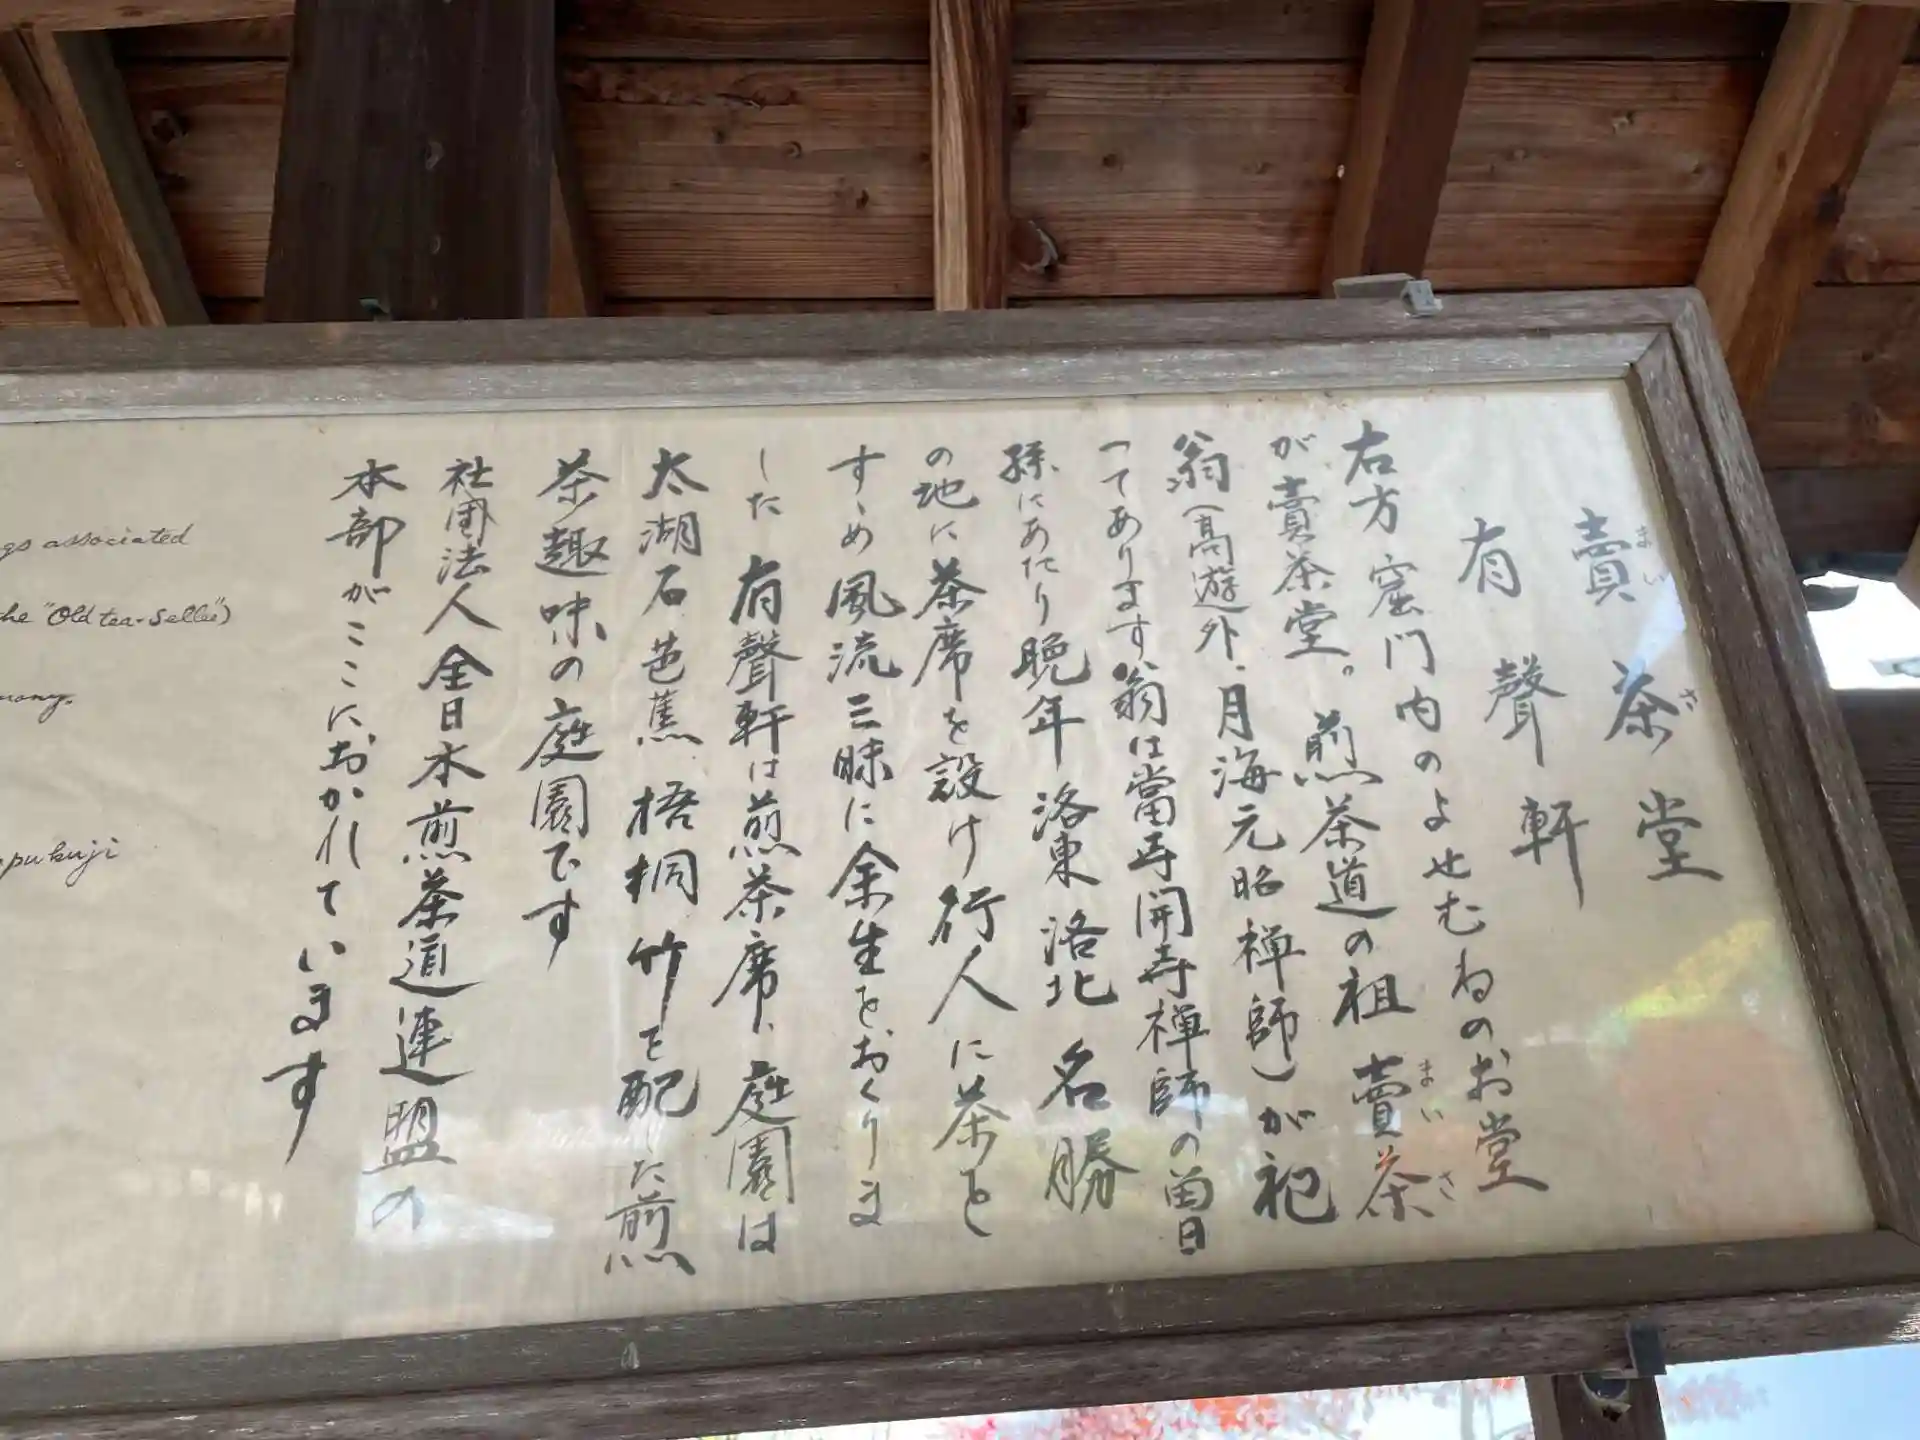 賣茶堂
まいさ
有聲軒
右方窟門内のよせむねのお堂
が賣茶堂。煎茶道の祖 賣茶
まいさ
翁(高遊外、月海元昭禅師)が祀
ってあります 翁は當寺開壽禅師の曽
孫にあたり晩年 洛東 洛北 名勝
の地に茶席を設け行人に茶を
すゝめ風流三昧に余生をおくりま
した 有聲軒は煎茶席、庭園は
太湖石 芭蕉 梧桐 竹を配した煎
茶趣味の庭園です
社団法人全日本煎茶道連盟の
本部がここにおかれています
gs associated
he "Old tea-Seller")
mony.
pukuji